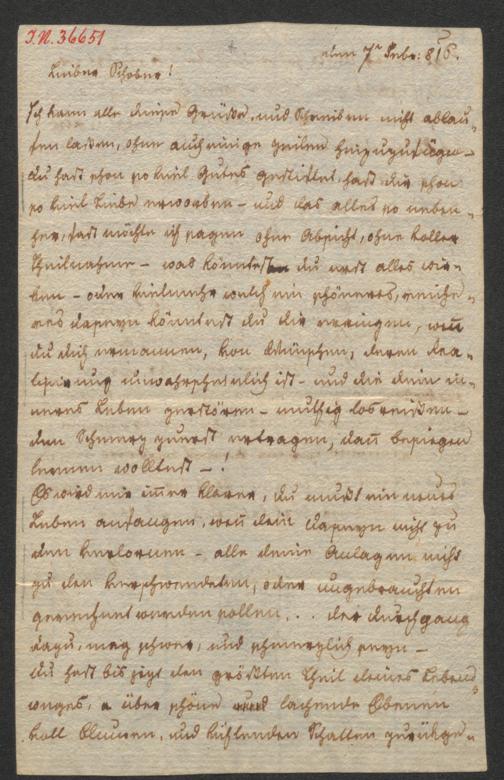 I.N. 36651
den 7n Febr: 816.
Lieber Schober!
Ich kann alle deine Grüße, und Schreiben nicht ablau-
fen laßen, ohne auch einige Zeilen hinzuzufügen –
du hast schon so viel Gutes gestiftet, hast dir schon
so viel Liebe erworben – und das alles so neben-
her, fast möchte ich sagen ohne Absicht, ohne voller
Theilnahme – was könntest du erst alles wir-
ken – oder vielmehr welch ein schöneres, reiche-
res Daseyn könntest du dir erringen, weñ
du dich ermannen, von Wünschen, deren Rea-
lisirung unwahrscheinlich ist – und die dein in-
neres Leben zerstören – muthig losreißen –
den Schmerz zuerst ertragen, dañ besiegen
lernen wolltest –!
Es wird mir im̃er klarer, du mußt ein neues
Leben anfangen, weñ dein Daseyn nicht zu
den verlornen – alle deine Anlagen nicht
zu den verschwendeten, oder ungebrauchten
gerechnet werden sollen, .. der Durchgang
dazu, mag schwer, und schmerzlich seyn –
du hast bis jezt den größten Theil deines Lebens-
weges, über schöne und lachende Ebenen
voll Blumen, und kühlenden Schatten zurückge-